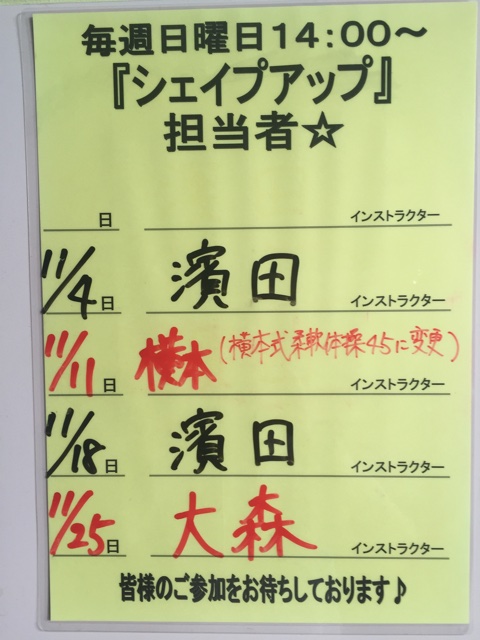 毎週日曜日14:00～
『シェイプアップ』
担当者☆
日 インストラクター
11/4日 濱田 インストラクター
11/11日 横本(横本式柔軟体操45に変更) インストラクター
11/18日 濱田 インストラクター
11/25日 大森 インストラクター
皆様のご参加をお待ちしております♪